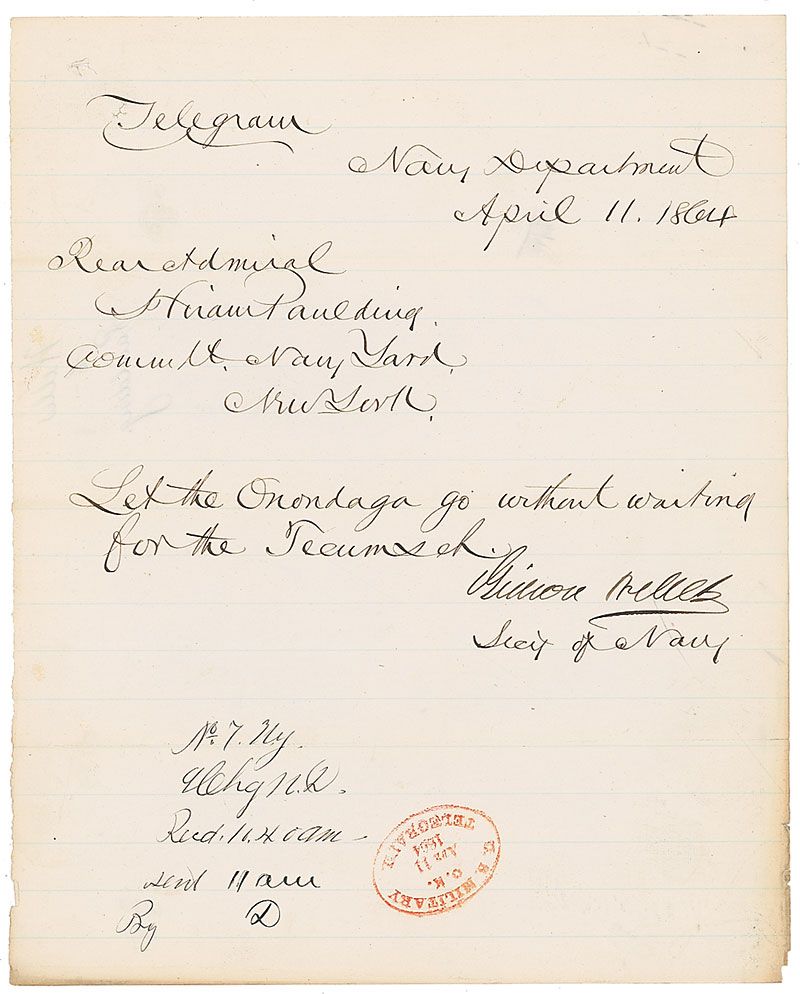 Telegram
Navy Department
April 11. 1864
Rear Admiral
Hiram Paulding.
Commdt. Navy Yard.
New York.
Let the Onondaga go without waiting
for the Tecumseh.
Gideon Welles
Secy of Navy
No. 7. Ny.
Chg
Recd. 11.40 am
sent 11 am
By D
U. S. MILITARY
O. K.
APR 11
1864
TELEGRAPH